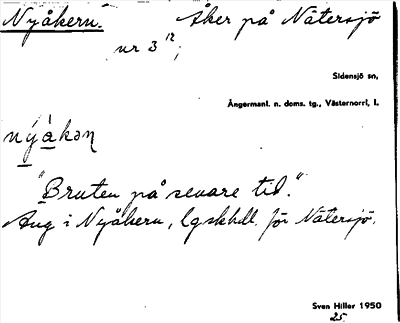 Nyåkern. Åker på Nätersjö
nr 3¹²;
Sidensjö sn,
Ångermanl. n. doms. tg., Västernorrl, l.
nýàkən
"Bruten på senare tid."
Aug i Nyåkern, lgskhdl. för Nätersjö.
Sven Hiller 1950
25.